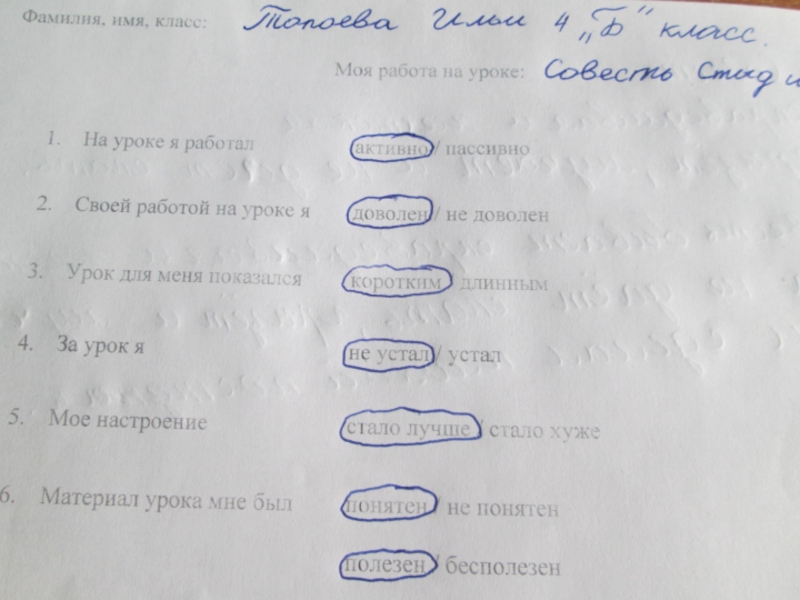 Фамилия, имя, класс: Топоева Ильи 4 „Б" класс.
Моя работа на уроке: Совесть Стыд и
1. На уроке я работал активно / пассивно
2. Своей работой на уроке я доволен / не доволен
3. Урок для меня показался коротким / длинным
4. За урок я не устал / устал
5. Мое настроение стало лучше / стало хуже
6. Материал урока мне был понятен / не понятен
полезен / бесполезен